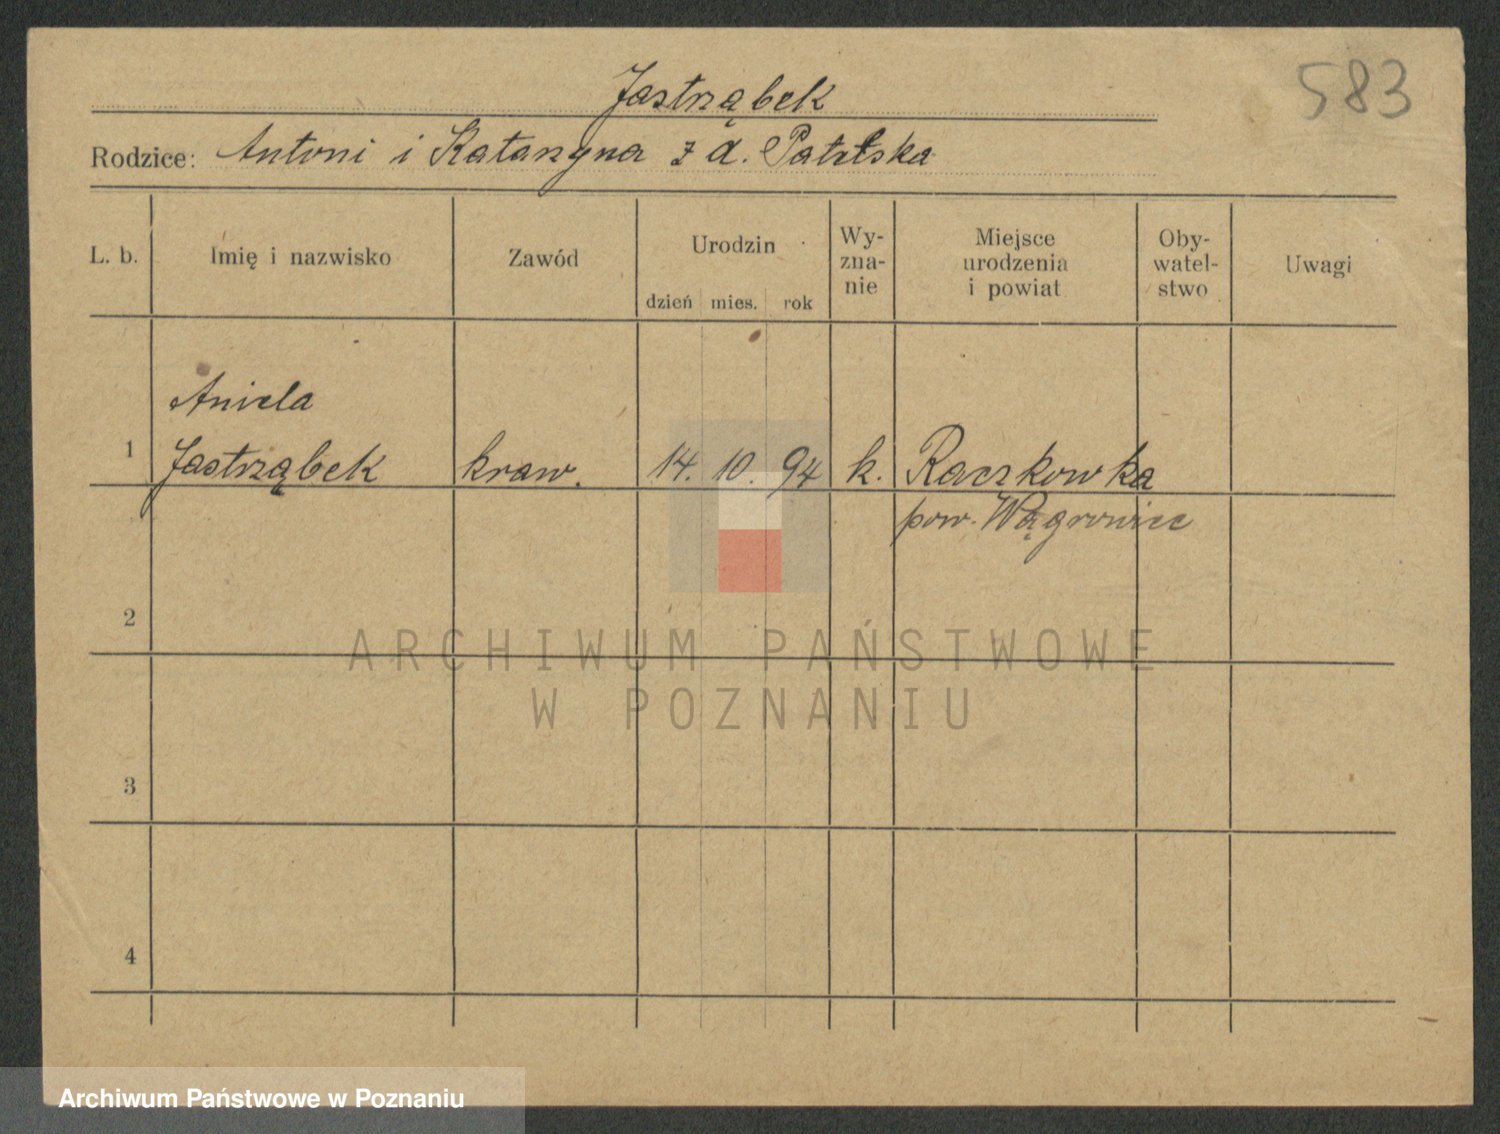 583
Jastrząbek
Rodzice: Antoni i Katarzyna z d.
L. b.
Imię i nazwisko
Zawód
Urodzin
dzień mies. rok
Wy-
zna-
nie
Miejsce
urodzenia
i powiat
Oby-
watel-
stwo
Uwagi
Aniela
1 Jastrząbek kraw. 14. 10. 94 k. Raczkowka
pow. Wągrowiec
2
3
4
ARCHIWUM PAŃSTWOWE
W POZNANIU
Archiwum Państwowe w Poznaniu